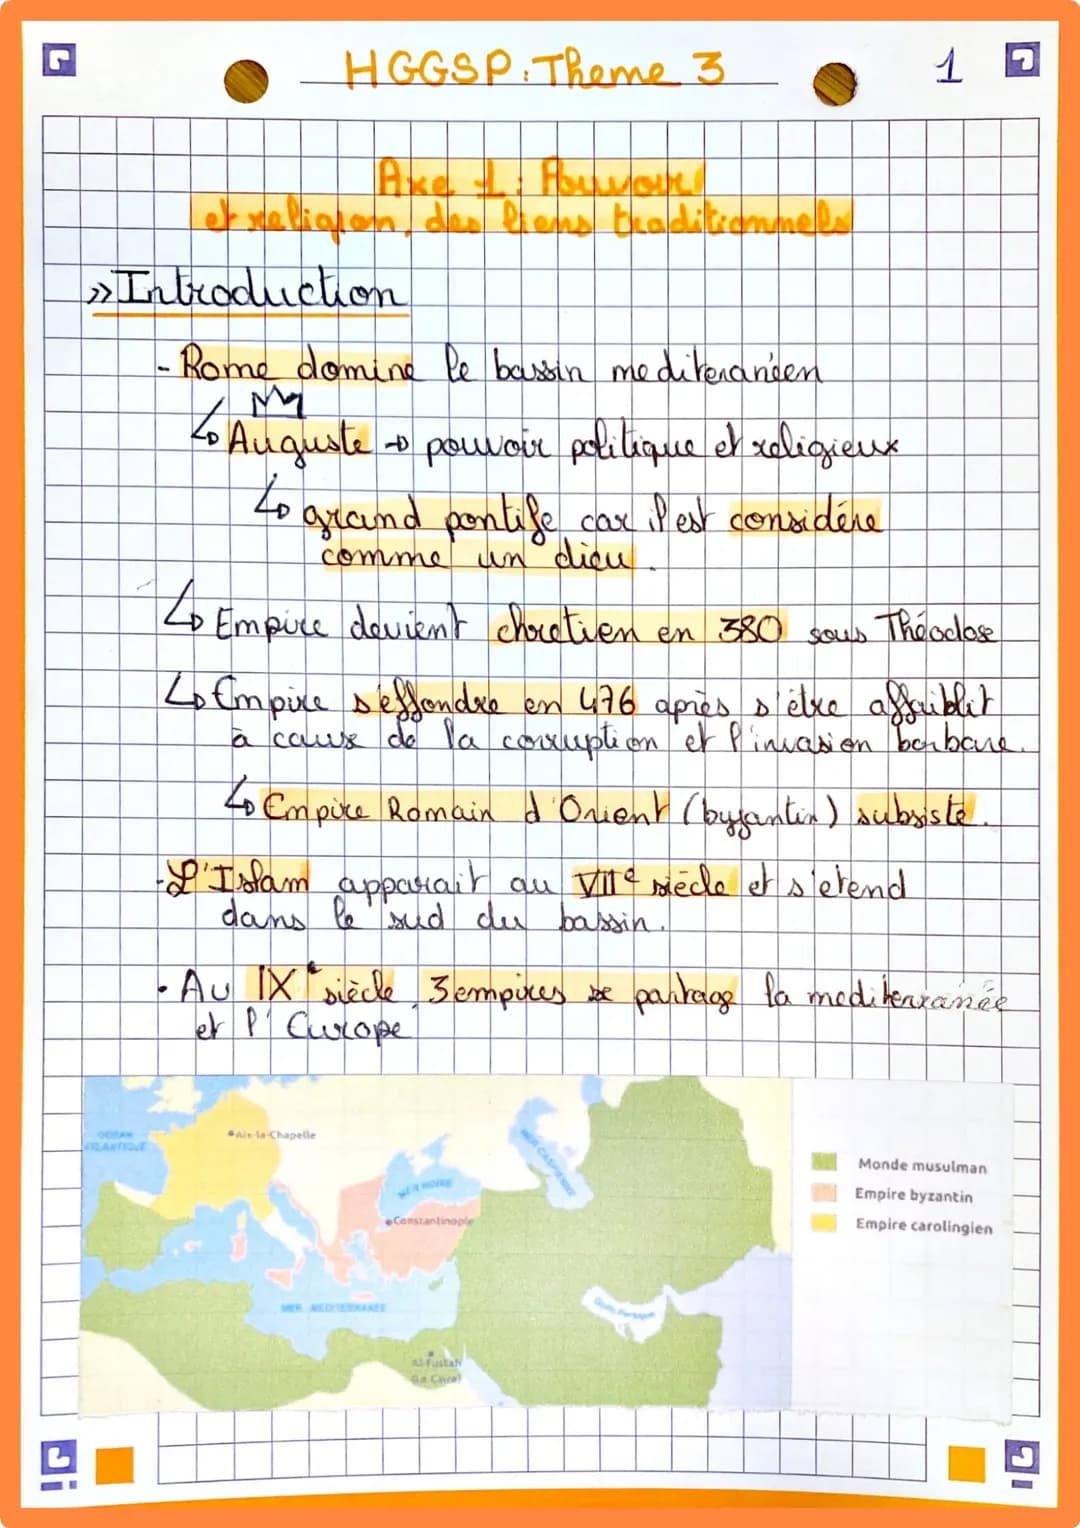 HGGSP : Theme 3
1
Axe 1 : Pouvoir
et religion, des liens traditionnels
» Introduction
- Rome domine le bassin mediteranéen
↳ Auguste → pouvoir politique et religieux
↳ grand pontife car il est considére
comme un dieu.
↳ Empire devient chretien en 380 sous Théodose
↳ Empire s'effondre en 476 après s'être affaiblit
à cause de la corruption et l'invasion barbare.
↳ Empire Romain d'Orient (byzantin) subsiste.
- L'Islam apparait au VIIe siècle et s'etend
dans le sud du bassin.
• Au IXe siècle, 3 empires se partage la mediterranée
et l'Europe
OCÉAN
ATLANTIQUE
Aix-la-Chapelle
MER NOIRE
MER CASPIENNE
Constantinople
MER MEDITERRANÉE
Golfe Persique
Al-Fustat
(Le Caire)
Monde musulman
Empire byzantin
Empire carolingien